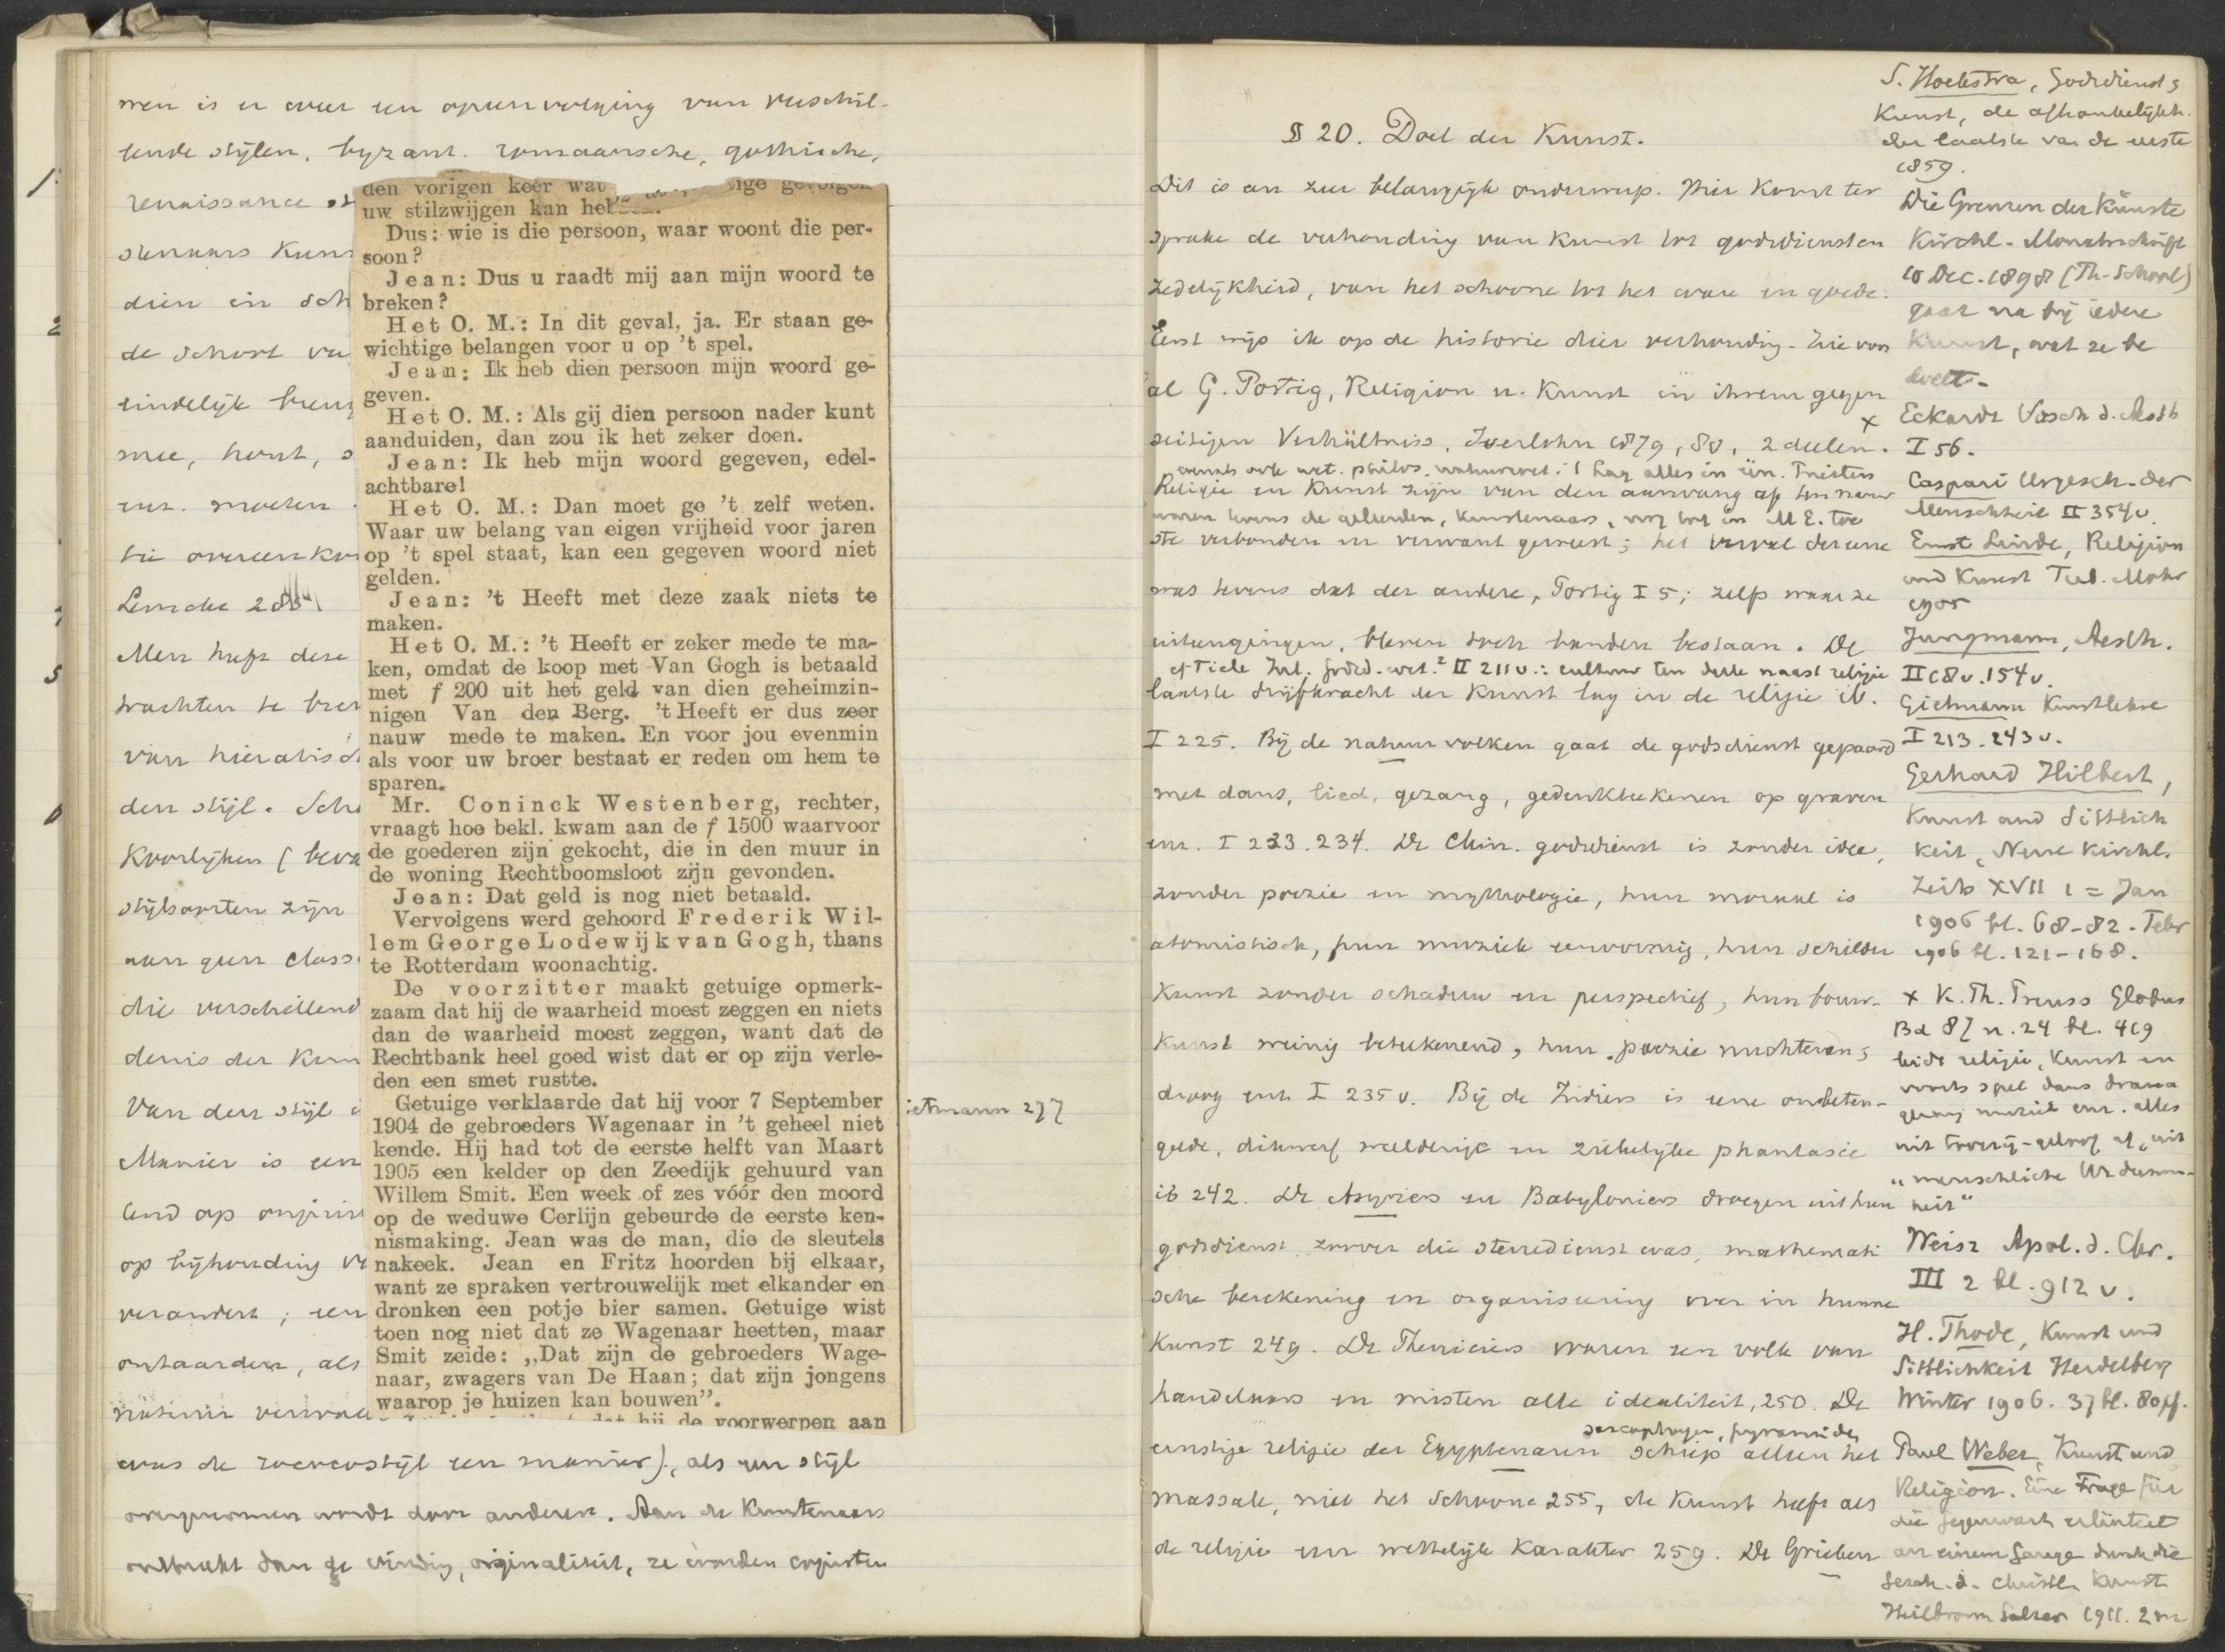 men is er weer een opeenvolging van verschil-
lende stijlen, byzant. romaansche, gothische,
renaissance
stenaars Kuns
dien in sch
de school va
eindelijk breng
mee, hout, s
enz. moeten
die overeenko
Lemcke 28
Men heeft deze
trachten te bren
van hieratisch
den stijl. Scho
Koorlijken (beva
stijlsoorten zijn
aan geen class
die verschillend
denis der Kun
Van den stijl
Manier is een
op bijhouding
verandert; een
ontaarden, als
was de rococostijl een manier), als een stijl
overgenomen wordt door anderen. Aan de Kunstenaars
ontbreekt dan de vinding, originaliteit, ze worden copiisten
den vorigen keer wat
uw stilzwijgen kan heb
Dus: wie is die persoon, waar woont die per-
soon?
Jean: Dus u raadt mij aan mijn woord te
breken?
Het O. M.: In dit geval, ja. Er staan ge-
wichtige belangen voor u op 't spel.
Jean: Ik heb dien persoon mijn woord ge-
geven.
Het O. M.: Als gij dien persoon nader kunt
aanduiden, dan zou ik het zeker doen.
Jean: Ik heb mijn woord gegeven, edel-
achtbare!
Het O. M.: Dan moet ge 't zelf weten.
Waar uw belang van eigen vrijheid voor jaren
op 't spel staat, kan een gegeven woord niet
gelden.
Jean: 't Heeft met deze zaak niets te
maken.
Het O. M.: 't Heeft er zeker mede te ma-
ken, omdat de koop met Van Gogh is betaald
met f 200 uit het geld van dien geheimzin-
nigen Van den Berg. 't Heeft er dus zeer
nauw mede te maken. En voor jou evenmin
als voor uw broer bestaat er reden om hem te
sparen.
Mr. Coninck Westenberg, rechter,
vraagt hoe bekl. kwam aan de f 1500 waarvoor
de goederen zijn gekocht, die in den muur in
de woning Rechtboomsloot zijn gevonden.
Jean: Dat geld is nog niet betaald.
Vervolgens werd gehoord Frederik Wil-
lem George Lodewijk van Gogh, thans
te Rotterdam woonachtig.
De voorzitter maakt getuige opmerk-
zaam dat hij de waarheid moest zeggen en niets
dan de waarheid moest zeggen, want dat de
Rechtbank heel goed wist dat er op zijn verle-
den een smet rustte.
Getuige verklaarde dat hij voor 7 September
1904 de gebroeders Wagenaar in 't geheel niet
kende. Hij had tot de eerste helft van Maart
1905 een kelder op den Zeedijk gehuurd van
Willem Smit. Een week of zes vóór den moord
op de weduwe Cerlijn gebeurde de eerste ken-
nismaking. Jean was de man, die de sleutels
nakeek. Jean en Fritz hoorden bij elkaar,
want ze spraken vertrouwelijk met elkander en
dronken een potje bier samen. Getuige wist
toen nog niet dat ze Wagenaar heetten, maar
Smit zeide: „Dat zijn de gebroeders Wage-
naar, zwagers van De Haan; dat zijn jongens
waarop je huizen kan bouwen”.
hij de voorwerpen aan
ietmann 277
§ 20. Doel der Kunst.
Dit is een zeer belangrijk onderwerp. Hier komt ter
sprake de verhouding van Kunst tot godsdienst en
zedelijkheid, van het schoone tot het ware en goede.
Eerst wijs ik op de historie dier verhouding. Zie voor
al G. Portig, Religion u. Kunst in ihrem gegen
seitigen Verhältniss, Iserlohn 1879, 80, 2 deelen. x
evenals ook wet. philos. natuurwet. : lag alles in één. Priesters
Religie en Kunst zijn van den aanvang af ten nauw
waren tevens de geleerden, kunstenaars, nog tot in M E. toe
ste verbonden en verwant geweest; het verval der eene
was tevens dat der andere, Portig I 5; zelfs waar ze
uiteengingen, bleven toch banden bestaan. De
cf Tiele Inl. godsd. wet.² II 211 v.: cultuur ten deele naast religie
laatste drijfkracht der Kunst lag in de religie ib.
I 225. Bij de natuurvolken gaat de godsdienst gepaard
met dans, lied, gezang, gedenkteekenen op graven
enz. I 233. 234. De Chin. godsdienst is zonder idee,
zonder poezie en mythologie, hun moraal is
atomistisch, hun muziek eentoonig, hun schilder
Kunst zonder schaduw en perspectief, hun bouw-
Kunst weinig beteekenend, hun poezie nuchter en
droog enz I 235 v. Bij de Indiers is eene onbeten-
gelde, dikwerf weelderige en ziekelijke phantasie
ib 242. De Assyriers en Babyloniers droegen uit hun
godsdienst, zoover die sterredienst was, mathemati
sche berekening en organiseering over in hunne
Kunst 249. De Pheniciers waren een volk van
handelaars en misten alle idealiteit, 250. De
sarcophagen, pyramiden
ernstige religie der Egyptenaren schiep alleen het
massale, niet het Schoone 255, de Kunst heeft als
de religie een wettelijk Karakter 259. De Grieken
S. Hoekstra, Godsdienst &
Kunst, de afhankelijkh.
der laatste van de eerste
1859.
Die Grenzen der Künste
Kirchl. Monatschrift
10 Dec. 1898 (Th. School)
gaat na bij iedere
Kunst, wat ze be
doelt.
Eckardt Vorsch d. Aesth
I 56.
Caspari Urgesch. der
Menschheit II 354 v
Ernst Linde, Religion
und Kunst Tüb. Mohr
1905
Jungmann, Aesth.
II 68 v. 154 v.
Gietmann Kunstlehre
I 213. 243 v.
Gerhard Hilbert,
Kunst und Sittlich
keit, Neue Kirchl.
Zeits XVII 1 = Jan
1906 bl. 68-82. Febr
1906 bl. 121-168.
x K. Th. Preuss Globus
Bd 87 n. 24 bl. 419
leidt religie, Kunst en
voorts spel dans drama
gezang muziek enz. alles
uit tooverij-geloof af, uit
„menschliche Urdumm-
heit“
Weisz Apol. d. Chr.
III 2 bl. 912 v.
H. Thode, Kunst und
Sittlichkeit Heidelberg
Winter 1906. 37 bl. 80 pf.
Paul Weber, Kunst und
Religion. Eine Frage für
die Gegenwart erläutert
an einem Gange durch die
Gesch. d. christl. Kunst
Heilbronn Salzer 1911. 2 m